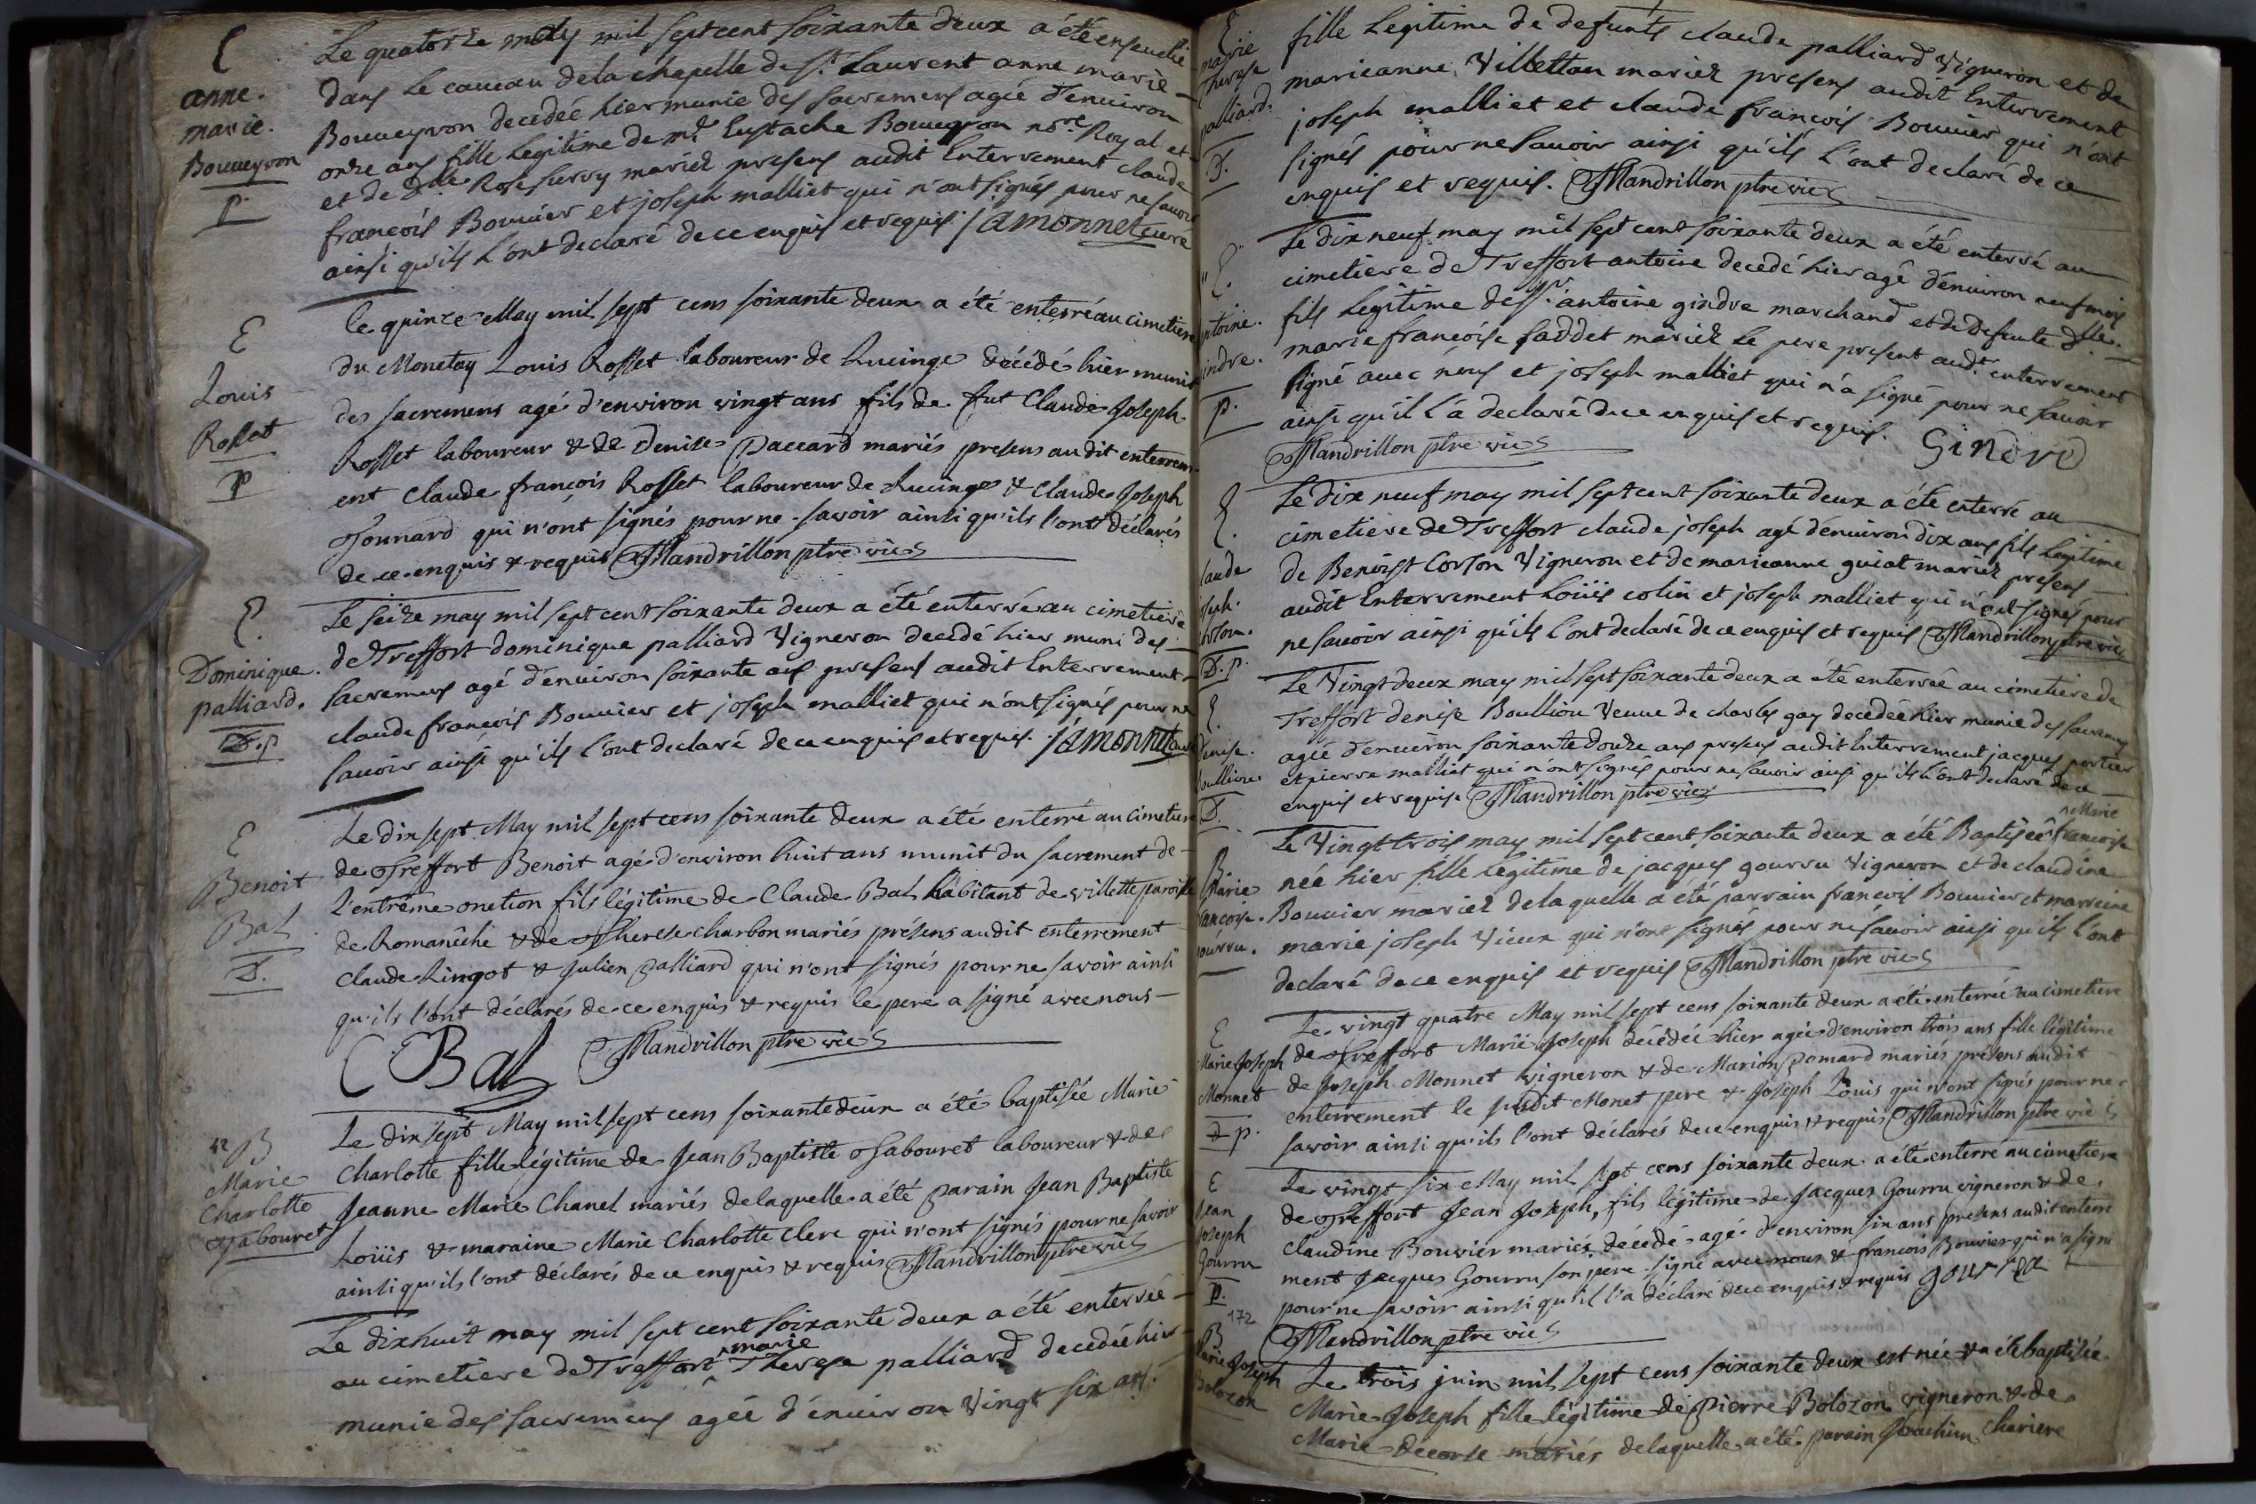 E
anne.
marie.
Bouveyron
P.
Le quatorze may mil sept cent soixante deux a été ensevelie
dans le caveau de la chapelle de St. Laurent anne marie
Bouveyron decedée hier munie des sacremens agée d'environ
onze ans fille legitime de mr. Eustache Bouveyron nore. Royal et
et de dlle. Rose survy mariez presens audit Enterrement claude
françois Bouvier et joseph malliet qui n'ont signés pour ne savoir
ainsi qu'ils l'ont declaré de ce enquis et requis. jamonnet curé
E
Louis
Rosset
P
le quinze May mil sept cens soixante deux a été enterré au cimetiere
du Monetay Louis Rosset laboureur de Lucinge décédé hier munit
des sacremens agé d'environ vingt ans fils de fut Claude Joseph
Rosset laboureur & de Denise Paccard mariés presens audit enterrem-
ent Claude françois Rosset laboureur de Lucinge & Claude Joseph
Tonnard qui n'ont signés pour ne savoir ainsi qu'ils l'ont déclarés
de ce enquis & requis Mandrillon ptre vic
E.
Dominique.
palliard.
D.P
Le seize may mil sept cent soixante deux a été enterré au cimetiere
de Treffort dominique palliard Vigneron decedé hier muni des
sacremens agé d'environ soixante ans presens audit Enterrement
claude françois Bouvier et joseph malliet qui n'ont signés pour ne
savoir ainsi qu'ils l'ont declaré de ce enquis et requis. jamonnet curé
E
Benoit
Bal
D.
Le dix sept May mil sept cens soixante deux a été enterré au cimetiere
de Treffort Benoit agé d'environ huit ans munit du sacrement de
l'entrême onction fils légitime de Claude Bal habitant de villette paroisse
de Romanêche & de Therese charbon mariés présens audit enterrement
Claude Lingot & Julien Palliard qui n'ont signés pour ne savoir ainsi
qu'ils l'ont déclarés de ce enquis & requis le pere a signé avec nous
C Bal Mandrillon ptre vic
B
Marie
Charlotte
Tabouret
Le dix sept May mil sept cens soixante deux a été baptisée Marie
Charlotte fille légitime de Jean Baptiste Tabouret laboureur & de
Jeanne Marie Chanel mariés de laquelle a été parain Jean Baptiste
Loüis & maraine Marie Charlotte Clerc qui n'ont signés pour ne savoir
ainsi qu'ils l'ont déclarés de ce enquis & requis Mandrillon ptre vic
Le dixhuit may mil sept cent soixante deux a été enterrée
au cimetiere de Treffort ^marie Therese palliard decedée hier
munie des sacremens agée d'environ Vingt six ans.
E
marie
Therese
palliard.
D.
fille Legitime de defunts claude palliard Vigneron et de
marieanne Villetton mariez presens audit Enterrement
joseph malliet et claude françois Bouvier qui n'ont
signés pour ne savoir ainsi qu'ils l'ont declaré de ce
enquis et requis. Mandrillon ptre vic
E.
ntoine.
indre.
P.
Le dix neuf may mil sept cent soixante deux a été enterré au
cimetiere de Treffort antoine decedé hier agé d'environ neuf mois
fils legitime de sr. antoine gindre marchand et de defunte dlle.
marie françoise faddet mariez le pere present audt. enterrement
signé avec nous et joseph malliet qui n'a signé pour ne savoir
ainsi qu'il l'a declaré de ce enquis et requis. Gindre
Mandrillon ptre vic
E.
laude
joseph.
D.p.
Le dix neuf may mil sept cent soixante deux a été enterré au
cimetiere de Treffort claude joseph agé d'environ dix ans fils legitime
de Benoist Corson Vigneron et de marieanne guiat mariez presens
audit Enterrement Loüis colin et joseph malliet qui n'ont signés pour
ne savoir ainsi qu'ils l'ont declaré de ce enquis et requis Mandrillon ptre vic
E.
denise.
Boulliou
D.
Le Vingt deux may mil sept soixante deux a été enterrée au cimetiere de
Treffort denise Boulliou Veuve de charles gay decedée hier munie des sacremens
agée d'environ soixante douze ans presens audit Enterrement jacques portier
et pierre malliet qui n'ont signés pour ne savoir ainsi qu'ils l'ont declaré de ce
enquis et requis. Mandrillon ptre vic
B
Marie
ançoise.
ourru.
Le Vingt trois may mil sept cent soixante deux a été Baptisée ^Marie francoise
née hier fille Legitime de jacques gourru Vigneron et de claudine
Bouvier mariez de laquelle a été parrain françois Bouvier et marreine
marie joseph Vieux qui n'ont signés pour ne savoir ainsi qu'ils l'ont
declaré de ce enquis et requis Mandrillon ptre vic
E
Marie Joseph
Monnet
d p.
Le vingt quatre May mil sept cens soixante deux a été enterrée au cimetiere
de Treffort Marie Joseph décédée hier agée d'environ trois ans fille légitime
de Joseph Monnet vigneron & de Marion Pomard mariés présens audit
enterrement le susdit Monet pere & Joseph Loüis qui n'ont signés pour ne
savoir ainsi qu'ils l'ont déclarés de ce enquis & requis Mandrillon ptre vic
E
Jean
Joseph
Gourru
P.
Le vingt six May mil sept cens soixante deux a été enterré au cimetiere
de Treffort Jean Joseph, fils légitime de Jacques Gourru vigneron & de
Claudine Bouvier mariés décédé agé d'environ six ans presens audit enterre
ment Jacques Gourru son pere signé avec nous & françois Bouvier qui n'a signé
pour ne savoir ainsi qu'il l'a déclaré de ce enquis & requis gourru
Mandrillon ptre vic
172
B
Marie Joseph
Bolozon
Le trois juin mil sept cens soixante deux est née & a été baptisée
Marie Joseph fille légitime de Pierre Bolozon vigneron & de
Marie Decorse mariés de laquelle a été parain Joachim Chariere